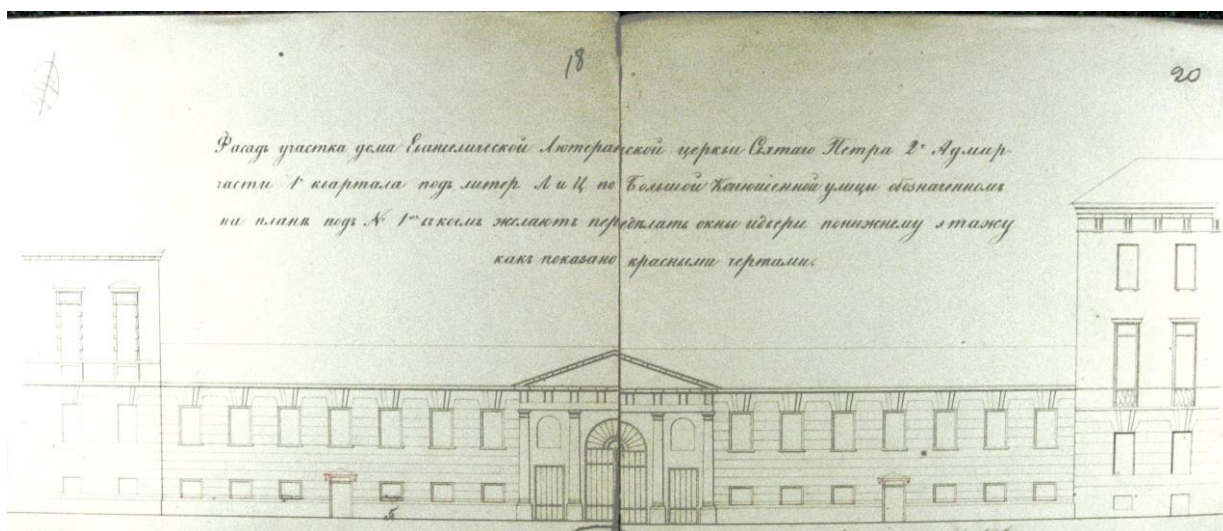 18
20
Фасадъ участка дома Евангелической Лютеранской церкви Святаго Петра 2й Адмир-
части 1го квартала подъ литер. Л и Ц по Большой Конюшенной улицы обозначенномъ
на планѣ подъ № 1мъ въ коемъ желаютъ передѣлать окны идвери понижнему этажу
какъ показано красными чертами.
Б